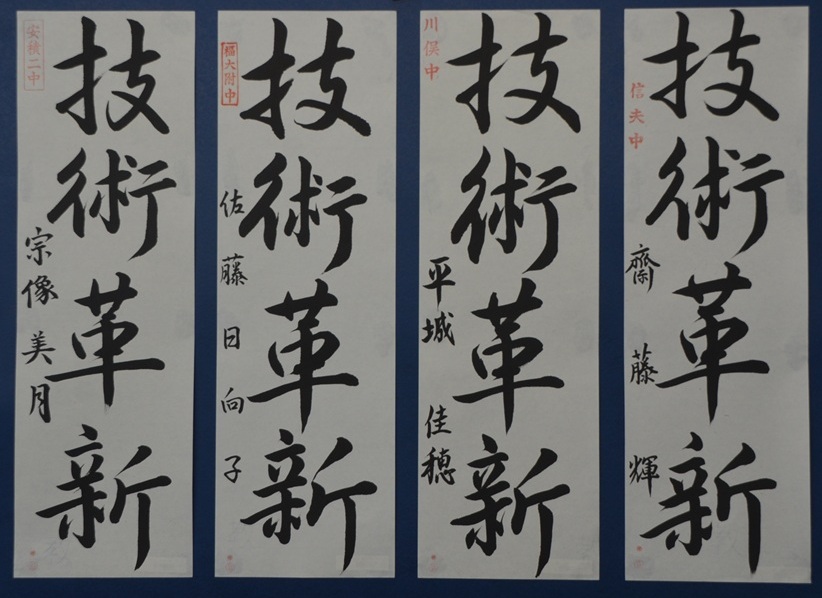 信夫中
技術革新
齋藤輝
川俣中
技術革新
平城佳穂
福大附中
技術革新
佐藤日向子
安積二中
技術革新
宗像美月